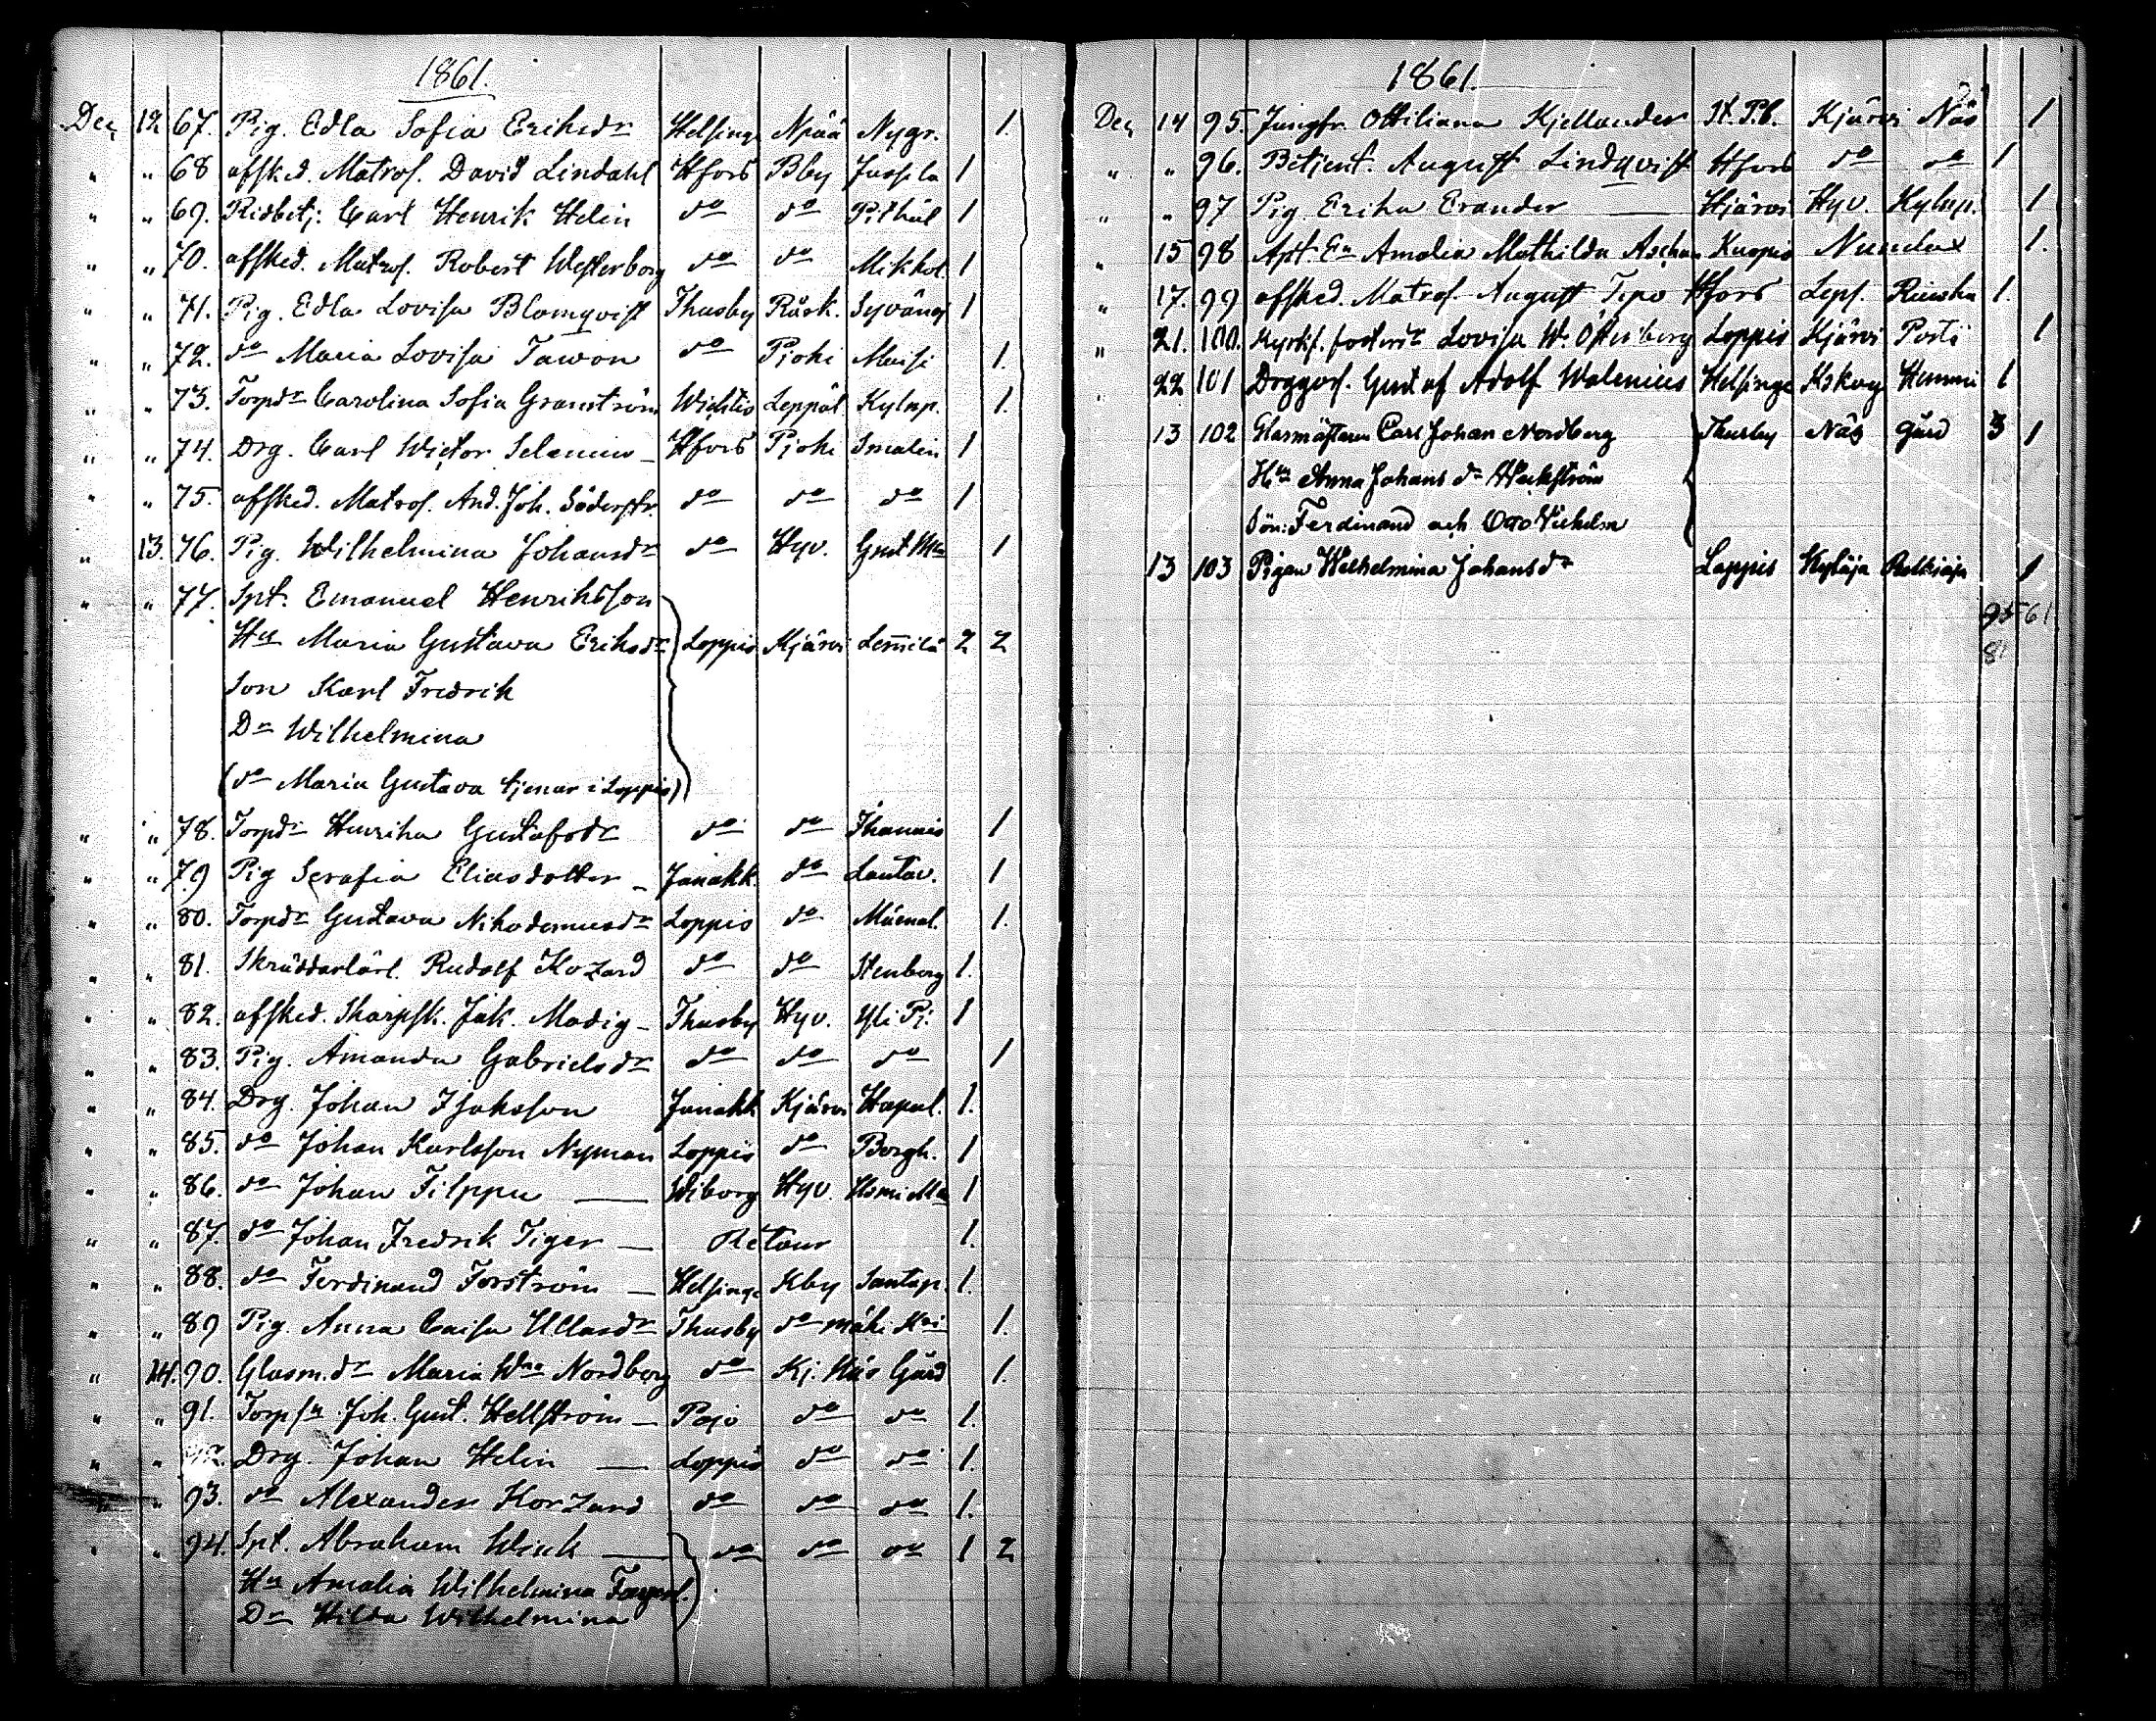 1861.
Dec 12 67. Pig. Edla Sofia Eriksdr Helsinge Npää Nygr. 1.
" " 68 afsked. Matros. David Lindahl Hfors Bby Jussila 1
" " 69. Ridbetj: Carl Henrik Helin do do Pithül 1
" " 70. afsked. Matros. Robert Westerborg do do Mikkol. 1
" " 71. Pig. Edla Lovisa Blomqvist Thusby Råsk. Syväng 1
" " 72. do Maria Lovisa Tawon do Pjoki Maisi 1.
" " 73. Torpdr Carolina Sofia Granström Wichtis Leppäl. Kylnp. 1.
" " 74. Drg. Carl Wictor Selenius Hfors Pjoki Smalin 1
" " 75. afsked. Matros. And. Joh. Söderstr. do do do 1
" 13. 76. Pig. Wilhelmina Johansdr do Hyv. 1
" " 77. Spt. Emanuel Henriksson
Hu Maria Gustava Eriksdr Loppis Kjärvi Lem̄ilä 2 2
Son Karl Fredrik
Dr Wilhelmina
(do Maria Gustava tjenar i Loppis)
" " 78. Torpdr Henrika Gustafsdr do do Ihamäis 1
" " 79 Pig Serafia Eliasdotter Janakk. do Lautav. 1
" " 80. Torpdr Gustava Nikodemusdr Loppis do Mäenal. 1.
" " 81. Skräddarlärl. Rudolf Kozard do do Stenberg 1.
" " 82. afsked. Skarpsk. Jak. Modig Thusby Hyv. Yli Pi. 1
" " 83. Pig. Amanda Gabrielsdr do do do 1
" " 84. Drg. Johan Isaksson Janakk Kjärvi Hapal. 1.
" " 85. do Johan Karlsson Nyman Loppis do Borgh. 1
" " 86. do Johan Filppu Wiborg Hyv. 1
" " 87. do Johan Fredrik Tiger Retour 1.
" " 88. do Ferdinand Forström Helsinge Kby Santap. 1.
" " 89 Pig. Anna Caisa Ullasdr Thusby do mäki 1.
" 14. 90. Glasm.dr Maria Wna Nordberg do Kj. Näs Gård 1.
" " 91. Torps. Joh. Gust. Hellström Pojo do do 1.
" " 92. Drg. Johan Helin Loppis do do 1.
" 93. do Alexander Korzard do do do 1.
" " 94. Spt. Abraham Wink do do do 1 2
Hu Amalia Wilhelmina
Dr Hilda Wilhelmina
1861.
Dec 14 95. Jungfr. Ottiliana Kjellander St. P.b. Kjärvi Näs 1
" " 96. Betjent. August Lindqvist Hfors do do 1
" " 97 Pig. Erika Erander Kjärvi Hyv. Kylnp. 1
" 15 98 Apt. En Amalia Mathilda Aschan Kuopio Numlax 1.
" 17. 99 afsked. Matros. August Tipo Hfors Leps. 1.
" 21. 100. Kyrkf. fosterdr Lovisa W. Öfterberg Loppis Kjärvi Porti 1
" 22 101 Drggos. Gustaf Adolf Walenius Helsinge Kskog Hemmi 1
13 102 Glasmästaren Carl Johan Nordberg Thusby Näs gård 3 1
Hu Anna Johans dr Weckström
Sön: Ferdinand och Otto Vilhelm
13 103 Pigan Wilhelmina Johansdr Loppis Kyläja 1
95 61
81